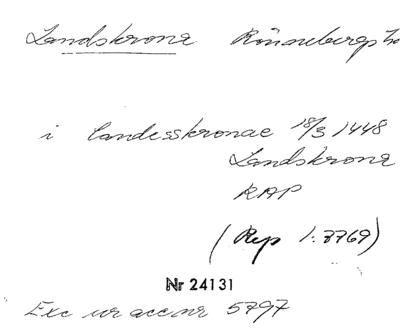 Landskrona Rönnebergs h
i landesskronae 18/3 1448
Landskrona
RAP
(Rep 1:7769)
Nr 24131
Exc ur acc nr 5797